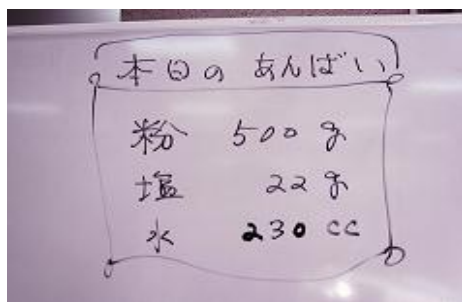 本日のあんばい
粉 500g
塩 22g
水 230cc